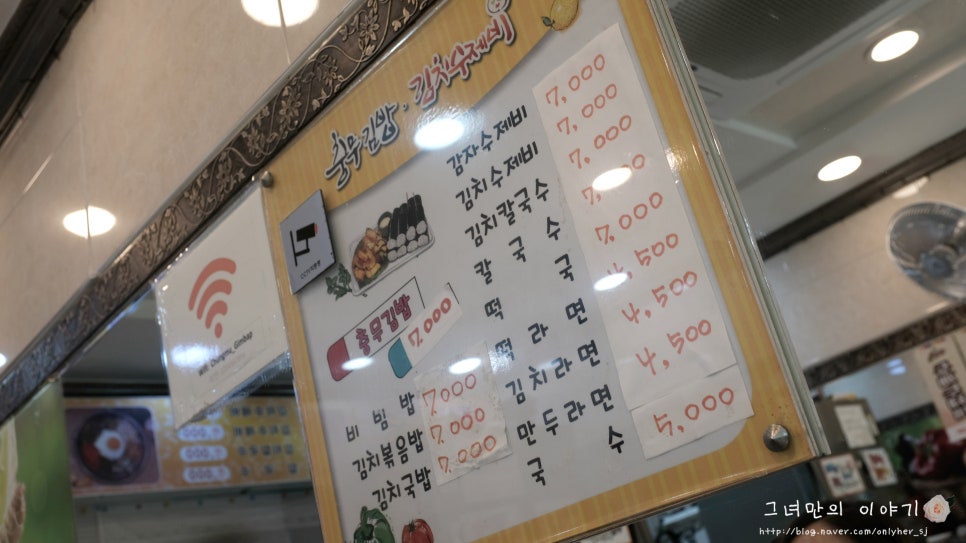 충무김밥 · 김치수제비
감자수제비 7,000
김치수제비 7,000
김치칼국수 7,000
칼 국 수 7,000
떡 국 7,000
떡 라 면 4,500
김치라면 4,500
만두라면 4,500
국 수 5,000
충무김밥 7,000
비 빔 밥 7000
김치볶음밥 7,000
김치국밥 7,000
그녀만의 이야기
http://blog.naver.com/onlyher_sj